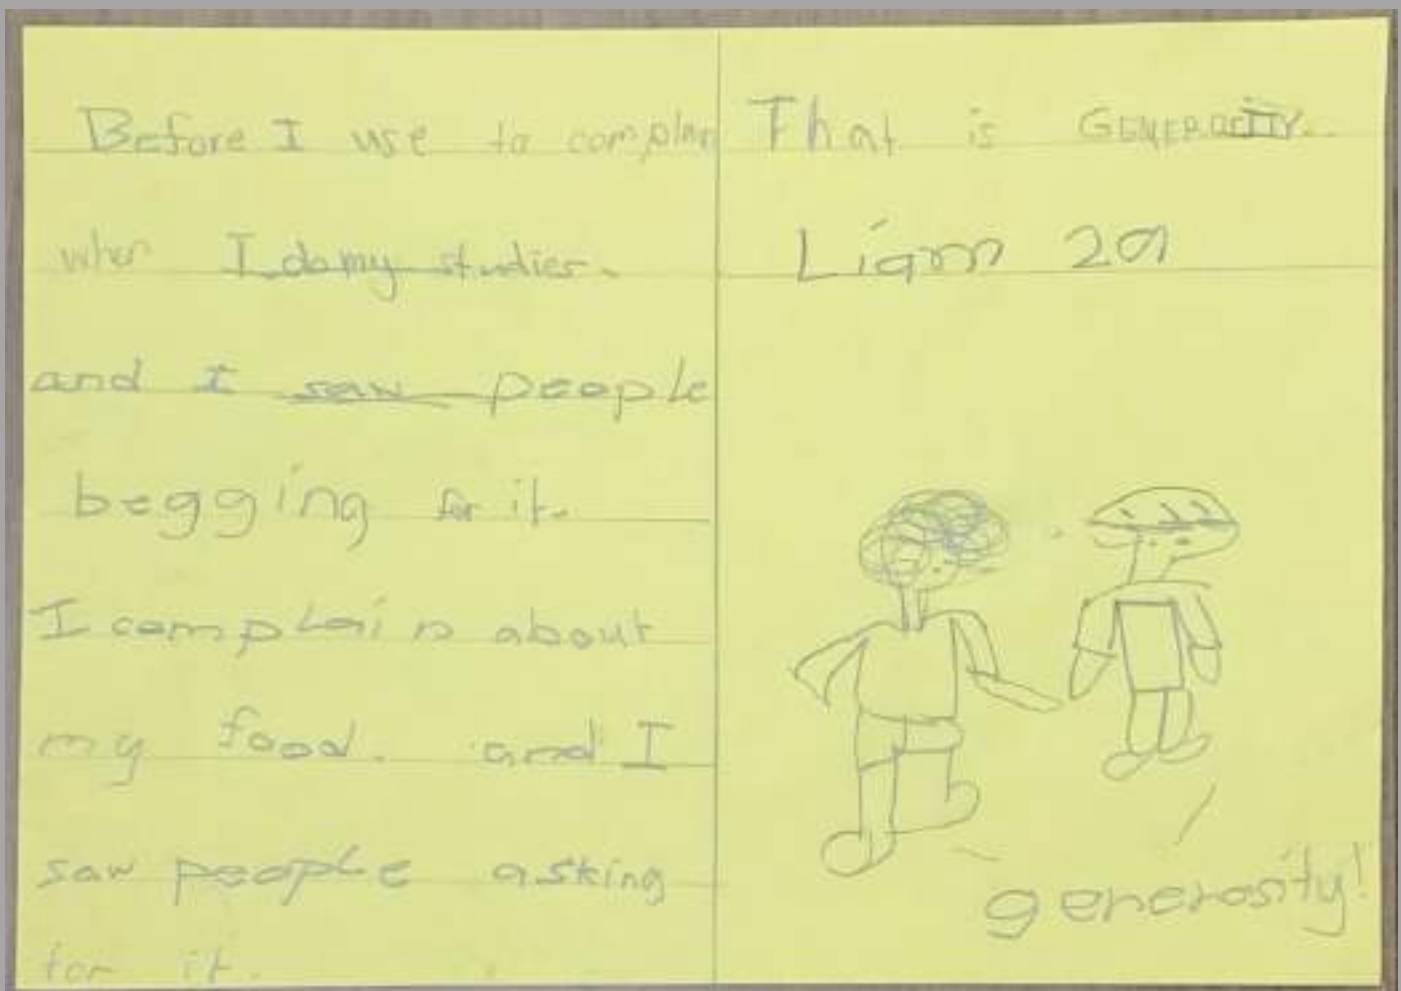 Before I use to complan
when I do my studies.
and I saw people
begging for it.
I complain about
my food. and I
saw people asking
for it.
That is GENEROCITY.
Liam 201
generosity!